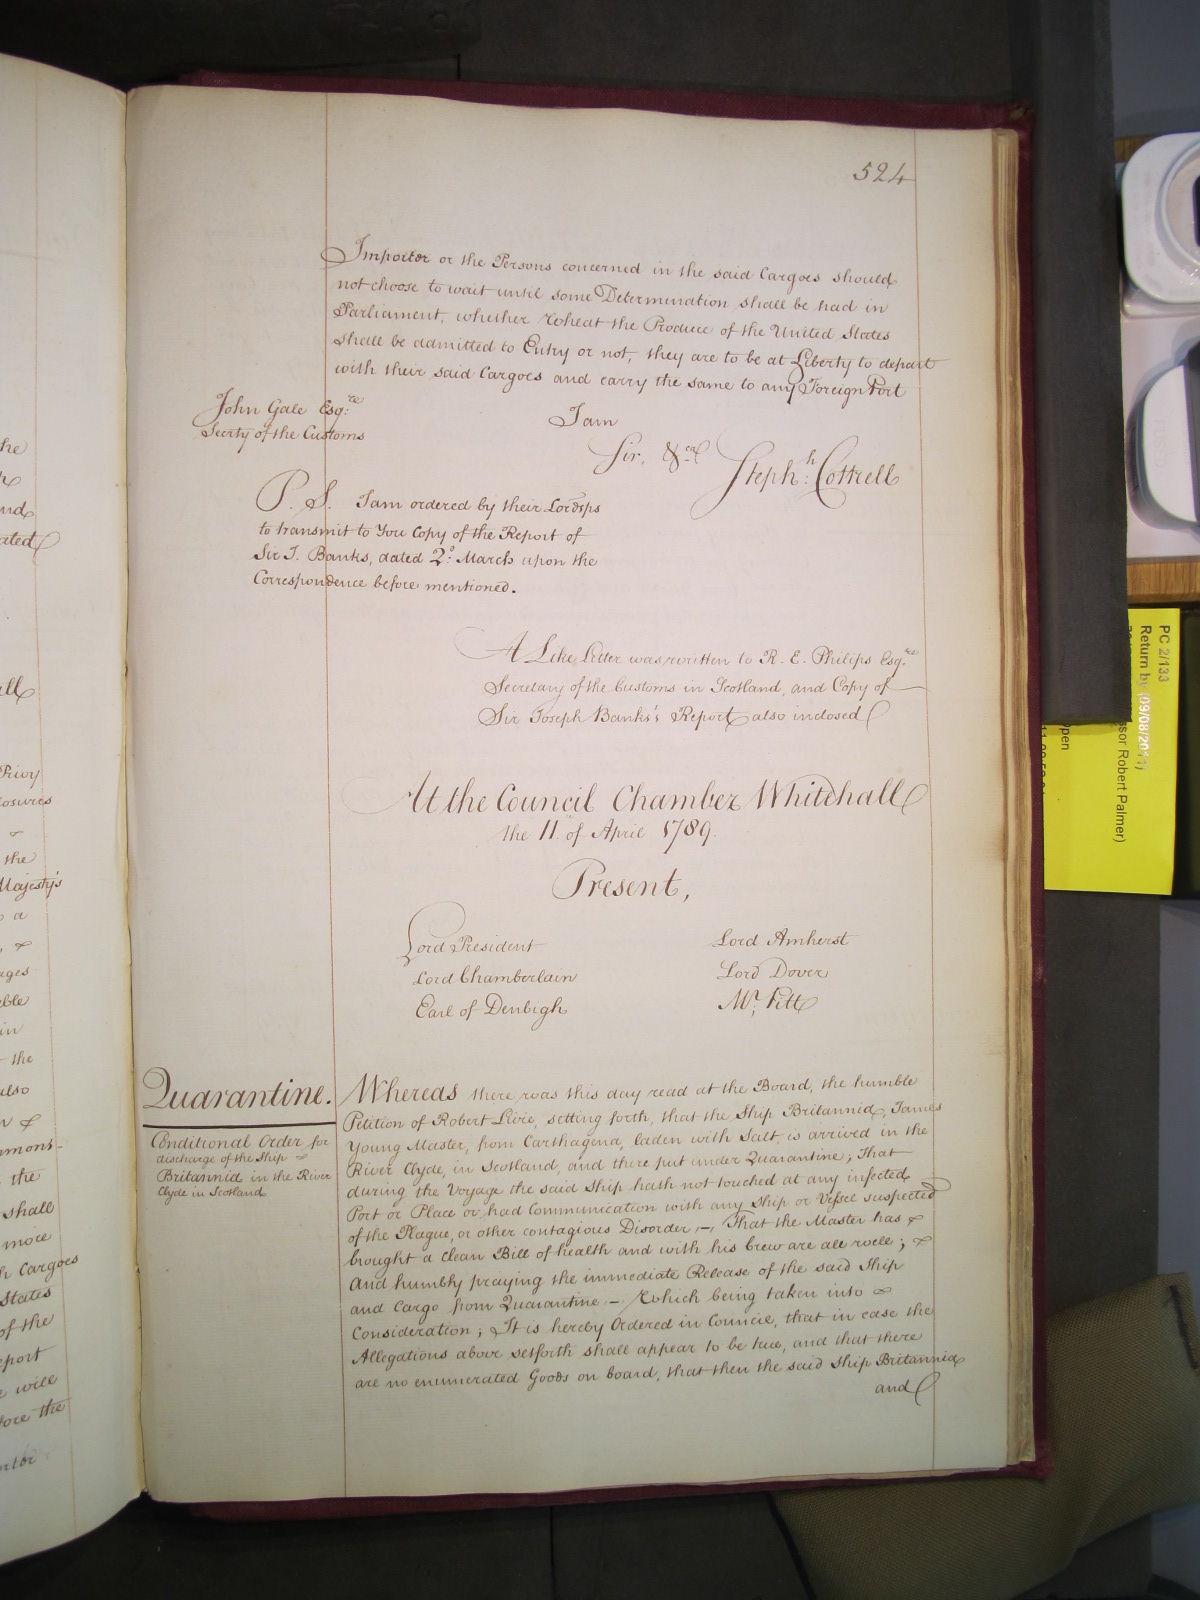 524
Importer or the Persons concerned in the said Cargoes should
not choose to wait until some Determination shall be had in
Parliament, whether Wheat the Produce of the United States
shall be admitted to Entry or not, they are to be at Liberty to depart
with their said Cargoes and carry the same to any Foreign Port
I am
Sir, &ca
Stephn: Cottrell
John Gale Esq:re
Secrty of the Customs
P. S. I am ordered by their Lordsps
to transmit to You Copy of the Report of
Sir J. Banks, dated 2d March upon the
Correspondence before mentioned.
A Like Letter was written to R. E. Philips Esq.re
Secretary of the Customs in Scotland, and Copy of
Sir Joseph Banks's Report also inclosed
At the Council Chamber Whitehall
the 11th of April 1789.
Present,
Lord President
Lord Chamberlain
Earl of Denbigh
Lord Amherst
Lord Dover
Mr. Pitt
Quarantine.
Conditional Order for
discharge of the Ship
Britannia in the River
Clyde in Scotland
Whereas there was this day read at the Board, the humble
Petition of Robert Livie, setting forth, that the Ship Britannia, James
Young Master, from Carthagena, laden with Salt, is arrived in the
River Clyde, in Scotland, and there put under Quarantine; That
during the Voyage the said Ship hath not touched at any infected
Port or Place or had Communication with any Ship or Vessel suspected
of the Plague, or other contagious Disorder — That the Master has &
brought a clean Bill of health and with his Crew are all well; &
And humbly praying the immediate Release of the said Ship
and Cargo from Quarantine — Which being taken into
Consideration; It is hereby Ordered in Council, that in case the
Allegations above setforth shall appear to be true, and that there
are no enumerated Goods on board, that then the said Ship Britannia
and
PC 2/133
Return by (09/08/2011)
ssor Robert Palmer)
open
he
nd
ated
Privy
losures
the
Majesty's
a
ages
in
the
also
&
mmons-
the
shall
more
Cargoes
States
of the
eport
will
fore the